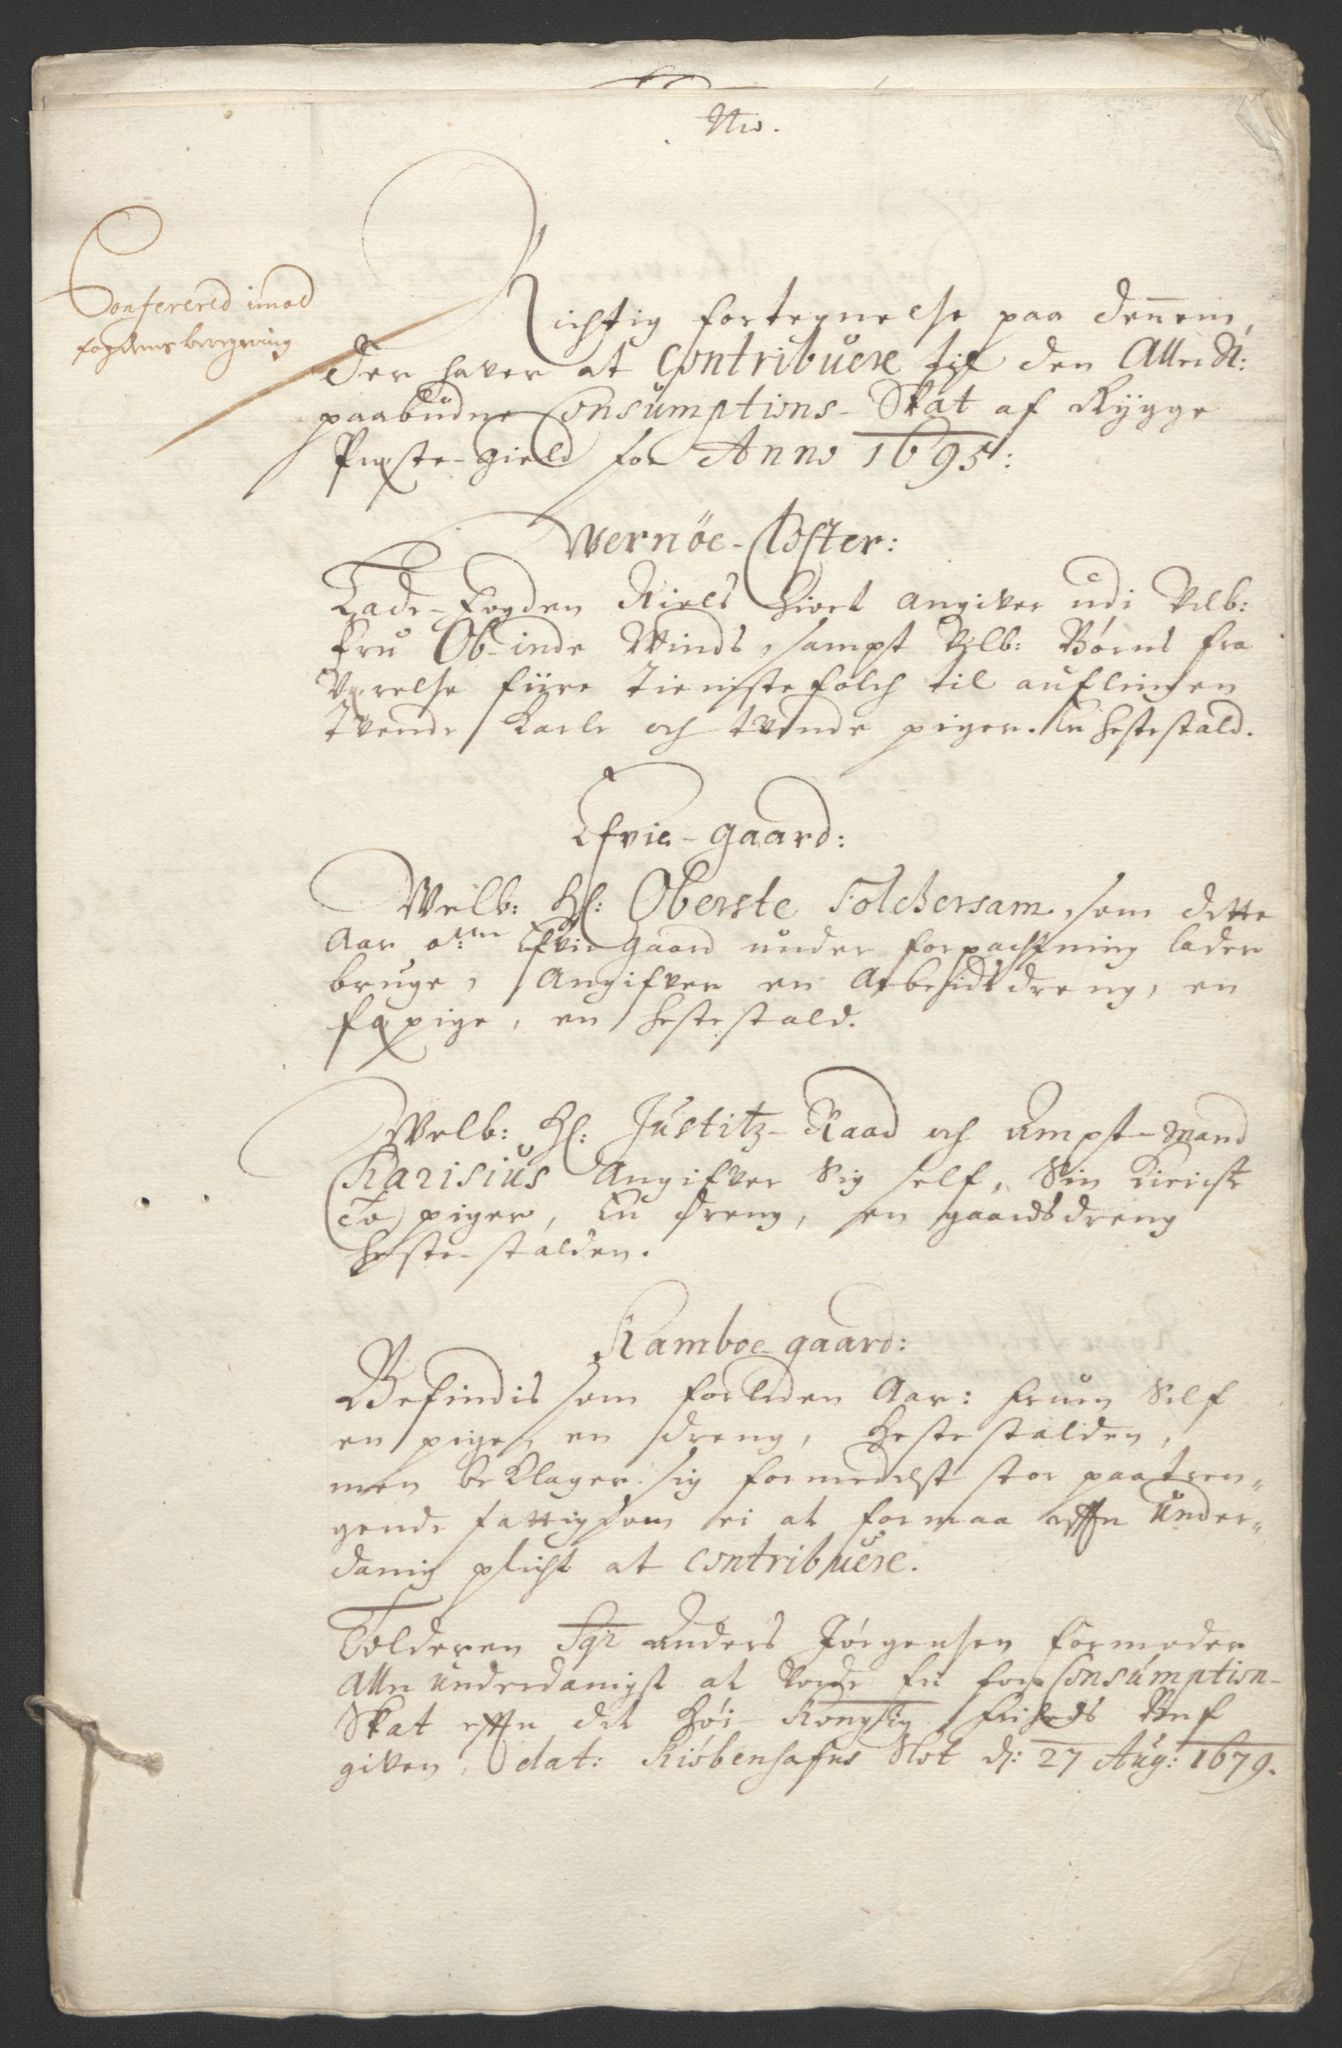 No.
Confererid imod
fogdens beregning
Richtig fortegnelse paa dennem,
der haver at Contribuere til den Aller N:
paabudne Consumptions-Skat af Rygge
Præste-gield for Anno 1695:
Wernøe-Closter:
Lade-fogden Niels angiver udi Velb:
Fru Ob inde Winds, sampt Velb: Børns fra
Værelse fiire tienistefolch til auflingen
Tvende Karle och tvende piger. En hestestald.
Efvie-gaard:
Welb: Hl: Oberste Folchersam, som dette
Aar Efvie gaard under forpachtning lader
bruge, Angifver en Arbeidsdreng, en
fæpige, en hestestald.
Welb: Hl: Justitz-Raad och Ampt-mand
Karisius Angifver Sig self, Sin Kiereste
to piger, En dreng, en gaardsdreng
heste-stalden.
Kamboe gaard:
Befindis som forleden Aar: fruen Self
en pige, en dreng, heste stalden,
men beklager sig formedelst stor paatren-
gende fattigdom ei at formaa efter Under-
danig plicht at Contribuere.
Tolderen Sgr Anders Jørgensen formoder
Aller underdanigst at vorde fri for Consumption-
Skat efter det Høi-Kongelig friheds Bref
given, dat: Kiøbenhafns Slot d: 27 Aug: 1679.